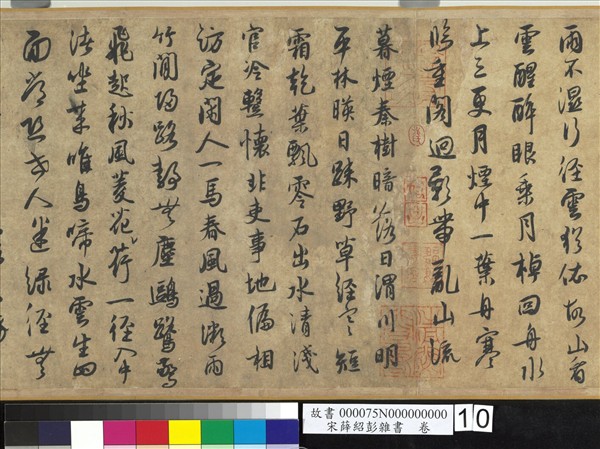 雨不濕行徑雲猶依故山看
雲醒醉眼乘月棹回舟水
上三更月煙中一葉舟寒
鴉重閣迴影帶亂山流
暮煙秦樹暗落日渭川明
平林暎日疎野草經寒短
霜乾葉飄零石出水清淺
官冷整懷非吏事地偏相
訪定閑人一馬春風過微雨
竹間歸路靜無塵鷗鷺驚
飛起秋風菱花荷一徑入中
法坐葉唯鳥啼水雲生四
面 人迷綠徑無
故書 000075N000000000
宋薛紹彭雜書 卷
10